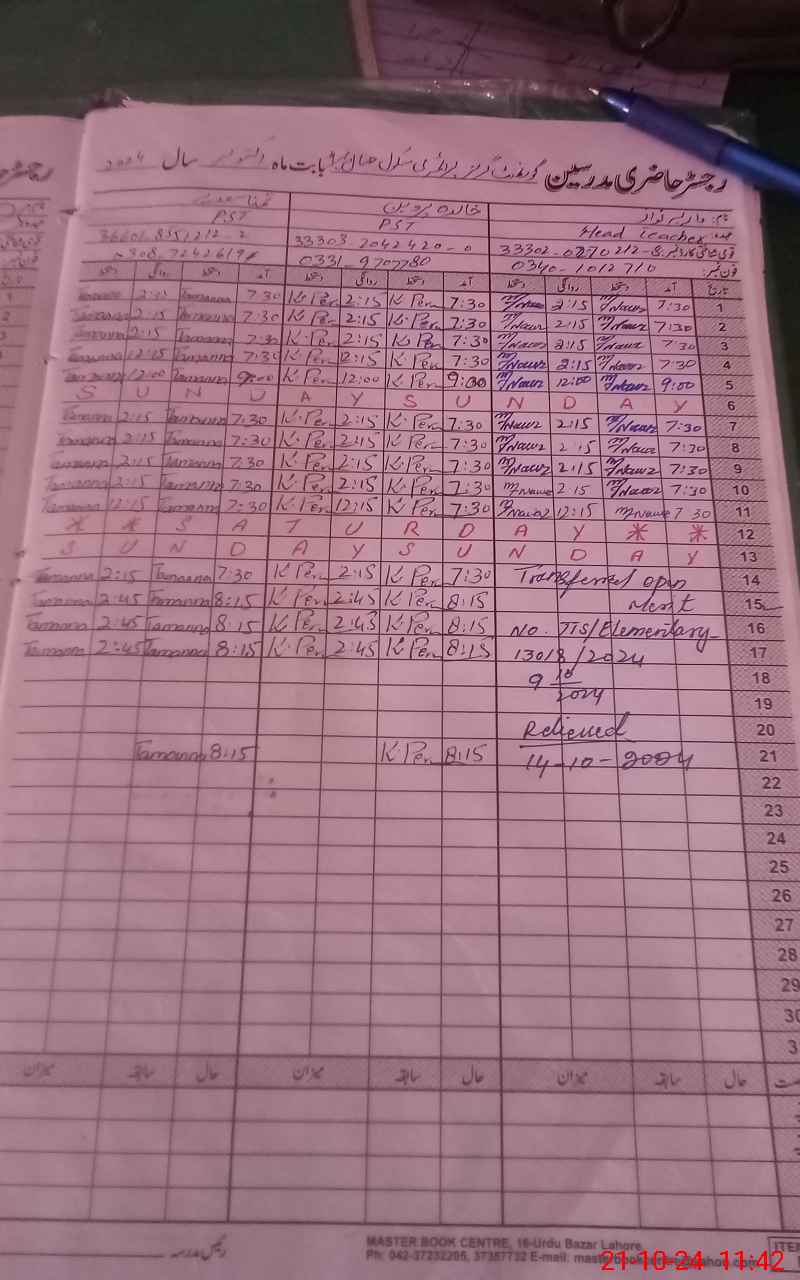 رجسٹر حاضری مدرسین گورنمنٹ گرلز پرائمری سکول بابت ماہ اکتوبر سال 2024
خالدہ پروین
Head Teacher PST PST
33302-0270212-8 33303-7042420-0 36601-8351212-2
0340-1012710 0331-9707780 0308-7242619
تاریخ آمد دستخط روانگی دستخط آمد دستخط روانگی دستخط آمد دستخط روانگی دستخط
Tamanna 2:15 Tamanna 7:30 K.Per 2:15 K.Per 7:30 M Nawz 2:15 M Nawz 7:30 1
Tamanna 2:15 Tamanna 7:30 K.Per 2:15 K.Per 7:30 M Nawz 2:15 M Nawz 7:30 2
Tamanna 2:15 Tamanna 7:30 K.Per 2:15 K.Per 7:30 M Nawz 2:15 M Nawz 7:30 3
Tamanna 12:15 Tamanna 7:30 K.Per 12:15 K.Per 7:30 M Nawz 2:15 M Nawz 7:30 4
Tamanna 12:00 Tamanna 9:00 K.Per 12:00 K.Per 9:00 M Nawz 12:00 M Nawz 9:00 5
S U N U A Y S U N D A Y 6
Tamanna 2:15 Tamanna 7:30 K.Per 2:15 K.Per 7:30 M Nawz 2:15 M Nawz 7:30 7
Tamanna 2:15 Tamanna 7:30 K.Per 2:15 K.Per 7:30 M Nawz 2:15 M Nawz 7:30 8
Tamanna 2:15 Tamanna 7:30 K.Per 2:15 K.Per 7:30 M Nawz 2:15 M Nawz 7:30 9
Tamanna 2:15 Tamanna 7:30 K.Per 2:15 K.Per 7:30 M Nawz 2:15 M Nawz 7:30 10
Tamanna 12:15 Tamanna 7:30 K.Per 12:15 K.Per 7:30 M Nawz 12:15 M Nawz 7:30 11
* * S A T U R D A Y * * 12
S U N D A Y S U N D A Y 13
Tamanna 2:15 Tamanna 7:30 K.Per 2:15 K.Per 7:30 Transferred open 14
Tamanna 2:45 Tamanna 8:15 K.Per 2:45 K.Per 8:15 Merit 15
Tamanna 2:45 Tamanna 8:15 K.Per 2:45 K.Per 8:15 No. TTS/Elementary 16
Tamanna 2:45 Tamanna 8:15 K.Per 2:45 K.Per 8:15 13018/2024 17
9 10/2024 18
19
Relieved 20
Tamanna 8:15 K.Per 8:15 14-10-2024 21
22
23
24
25
26
27
28
29
30
3
میزان سابقہ حال میزان سابقہ حال میزان سابقہ حال
رئیس مدرسہ
MASTER BOOK CENTRE, 16-Urdu Bazar Lahore.
Ph: 042-37232205, 37357732 E-mail:
ITE
21-10-24 11:42